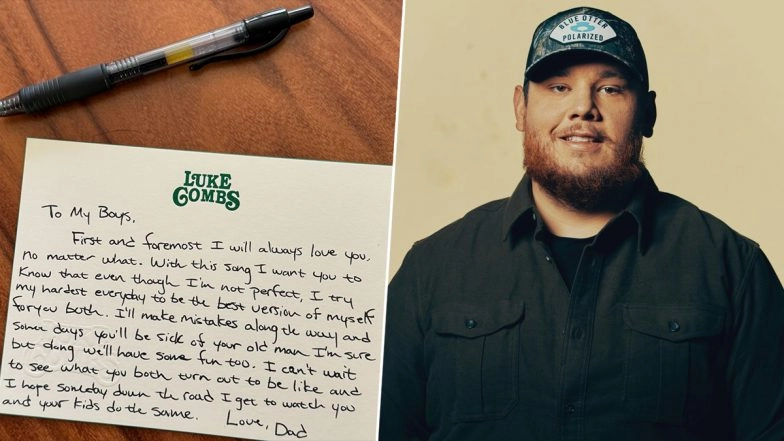 LUKE
COMBS
To My Boys,
First and foremost I will always love you,
no matter what. With this song I want you to
Know that even though I'm not perfect, I try
my hardest everyday to be the best version of myself
for you both. I'll make mistakes along the way and
some days you'll be sick of your old man I'm sure
but dang we'll have some fun too. I can't wait
to see what you both turn out to be like and
I hope someday down the road I get to watch you
and your kids do the same.
Love,
Dad
BLUE OTTER
POLARIZED